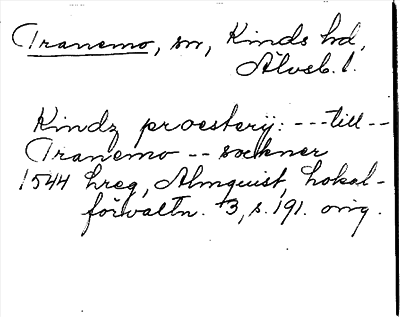 Tranemo, sn, Kinds hd,
Älvsb. l.
Kindz proesterij: --- till --
Tranemo -- sockner
1544 hreg, Almquist, Lokal-
förvaltn. 3, s. 191. orig.